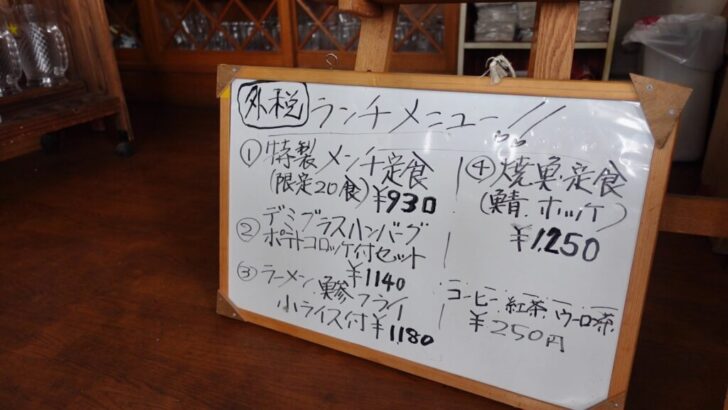 外税 ランチメニュー!!
① 特製メンチ定食
(限定20食) ¥930
② デミグラスハンバーグ
ポテトコロッケ付セット
¥1140
③ ラーメン、鯵フライ
小ライス付 ¥1180
④ 焼魚定食
(鯖、ホッケ)
¥1,250
コーヒー、紅茶、ウーロン茶
¥250円